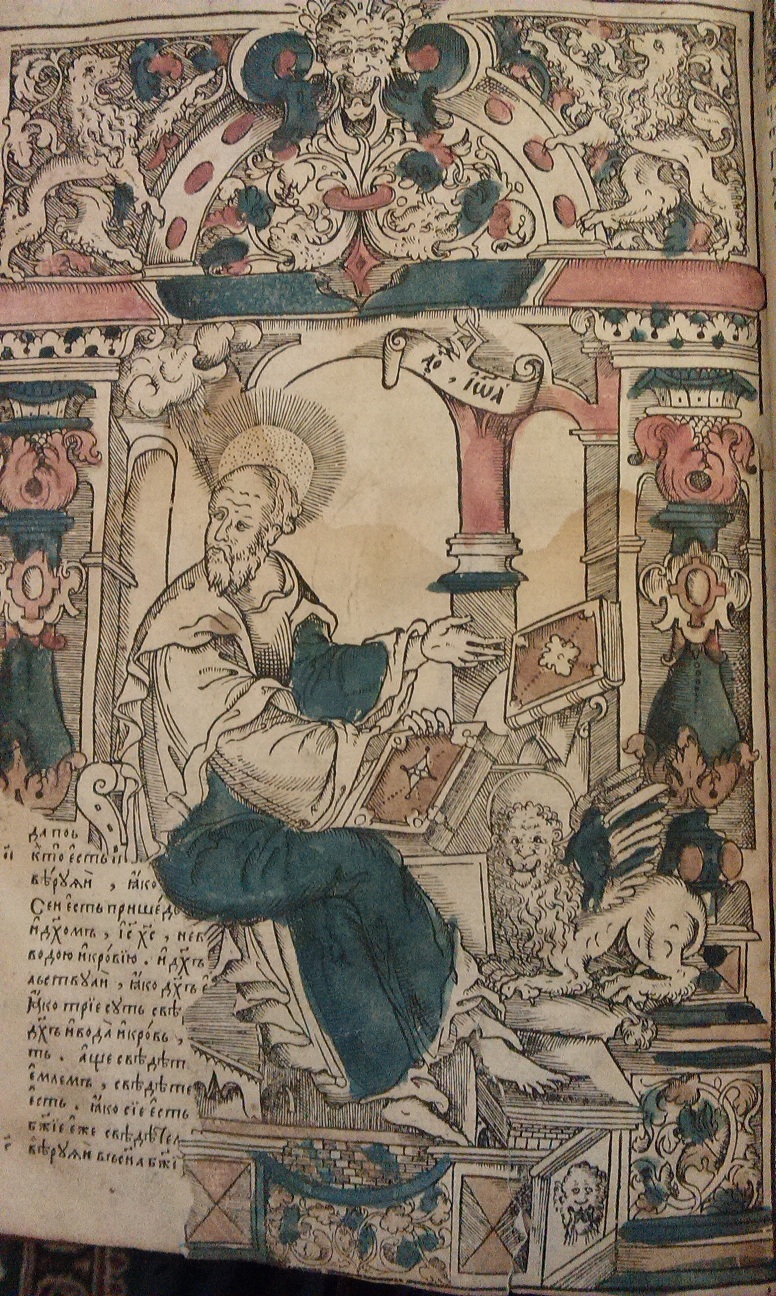 ҃о , і҆ѡ҃а
да поѣ
кто̀ е҆сть
вѣ́руѧй , ꙗ҆́кѡ
Се́й е҆сть прише́дъ
и҆ дх҃омъ , і҆с҃ хс҃ , не в
водо́ю и҆ кро́вїю . и҆ дх҃ъ
льствꙋѧй , ꙗ҆́кѡ дх҃ъ е҆
Ꙗ҆́кѡ трїѐ сꙋ́ть свѣ
дх҃ъ и҆ вода̀ и҆ кро́вь ,
тъ . а҆́ще свѣдѣт
е҆́млемъ , свѣдѣте
е҆́сть . ꙗ҆́кѡ сїѐ е҆́сть
бж҃їе е҆́же свѣдѣтел
вѣ́рꙋѧй в сн҃а бж҃і